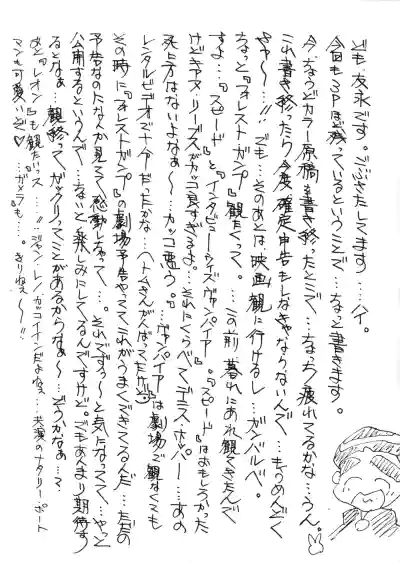 ども友永です。ごぶさたしてます……ハイ。
今回も3Pほど残っているということで…ちょっと書きます。
今、ちょうどカラー原稿を書き終ったとこで…ちょっち疲れてるかな…うん。
これ書き終ったら今度確定申告もしなきゃならないんで…もうめんどくせや～…!! でも…そのあとは映画観に行けるし…ガンバルベ。
ちょっと『フォレストガンプ』観たくって。…この前、暮れにあれ観てきたんですよ…『スピード』と『インタビューウィズヴァンパイア』…。『スピード』はおもしろかった
けどキアヌ・リーブスがカッコ良すぎるよ。それにくらべてデニス・ホッパー…あの
死に方はないよなぁ～…カッコ悪う。『…ヴァンパイア』は劇場で観なくても
レンタルビデオで十分だったかな…へトムさんがんばってたけど
その時に『フォレストガンプ』の劇場予告やっててこれがうまくできてるんだ…ただの
予告なのになんか見てて感動しちゃって…。それでずっと気になってって…やっと
公開するというんで…ちょっと楽しみにしてるんですけど。でもあんまり期待す
るとなぁ…観終ってガックリってことがあるからなぁ～…どうかなぁ…?
あと『レオン』も観たいっス…!! ジャン・レノがカッコイインだよねぇ…共演のナタリー・ポート
マンも可愛いぞ♡ …ガメラも…。きりねぇ～!!